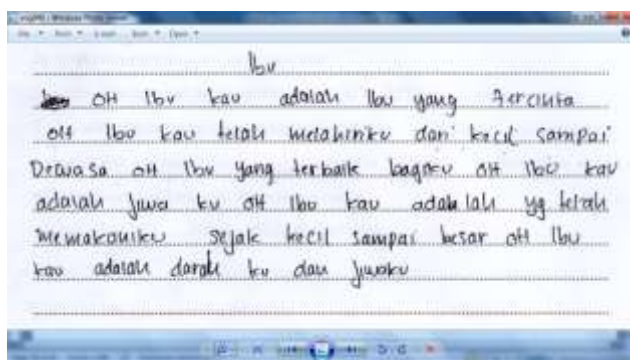 Ibu
OH Ibu kau adalah Ibu yang tercinta
OH Ibu kau telah melahirku dari kecil sampai
Dewasa OH Ibu yang terbaik bagiku OH Ibu kau
adalah jiwa ku OH Ibu kau adalah lah yg telah
memakaniku sejak kecil sampai besar OH Ibu
kau adalah darah ku dan jiwaku